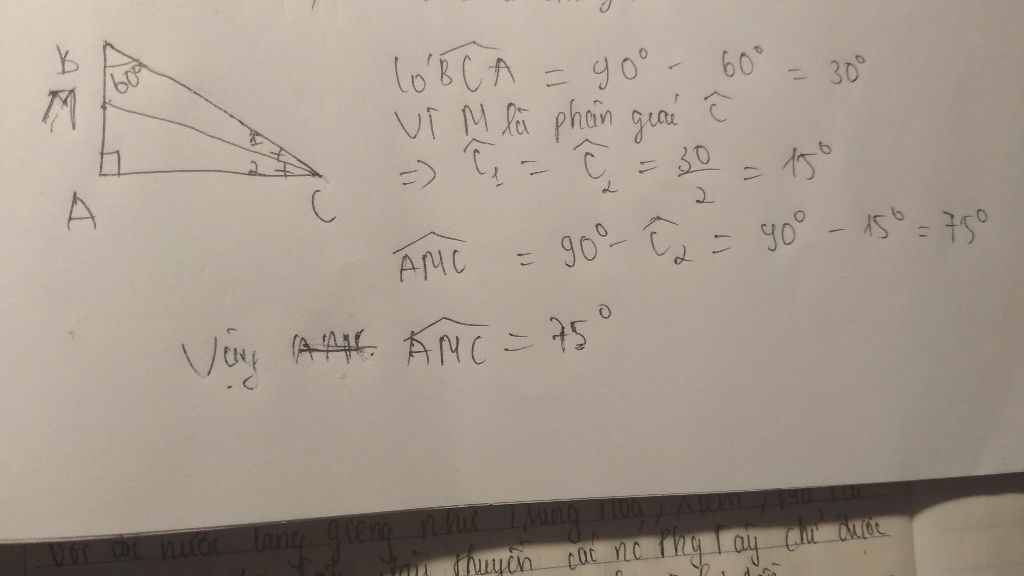 B
M
60°
1
2
A
C
Có BĈA = 90° - 60° = 30°
Vì M là phân giái Ĉ
=> Ĉ₁ = Ĉ₂ = 30/2 = 15°
AMC = 90° - Ĉ₂ = 90° - 15° = 75°
Vậy AMC = 75°
với các nước láng giềng như
thuyền các nc Phg Tây chỉ được